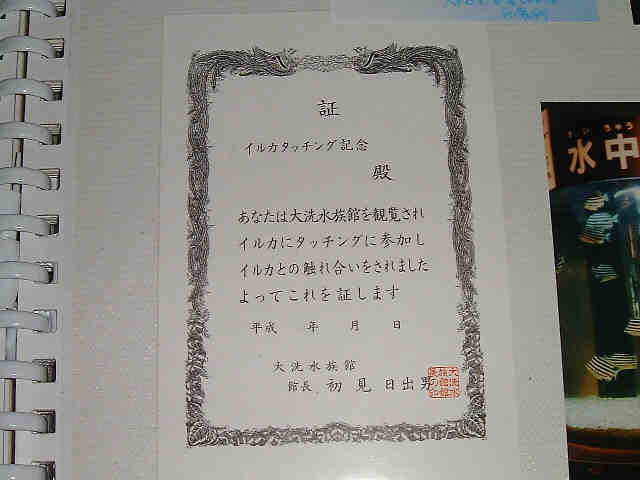 証
イルカタッチング記念
殿
あなたは大洗水族館を観覧され
イルカにタッチングに参加し
イルカとの触れ合いをされました
よってこれを証します
平成 年 月 日
大洗水族館
館長 初見日出男
大洗水族館の館長印
水中